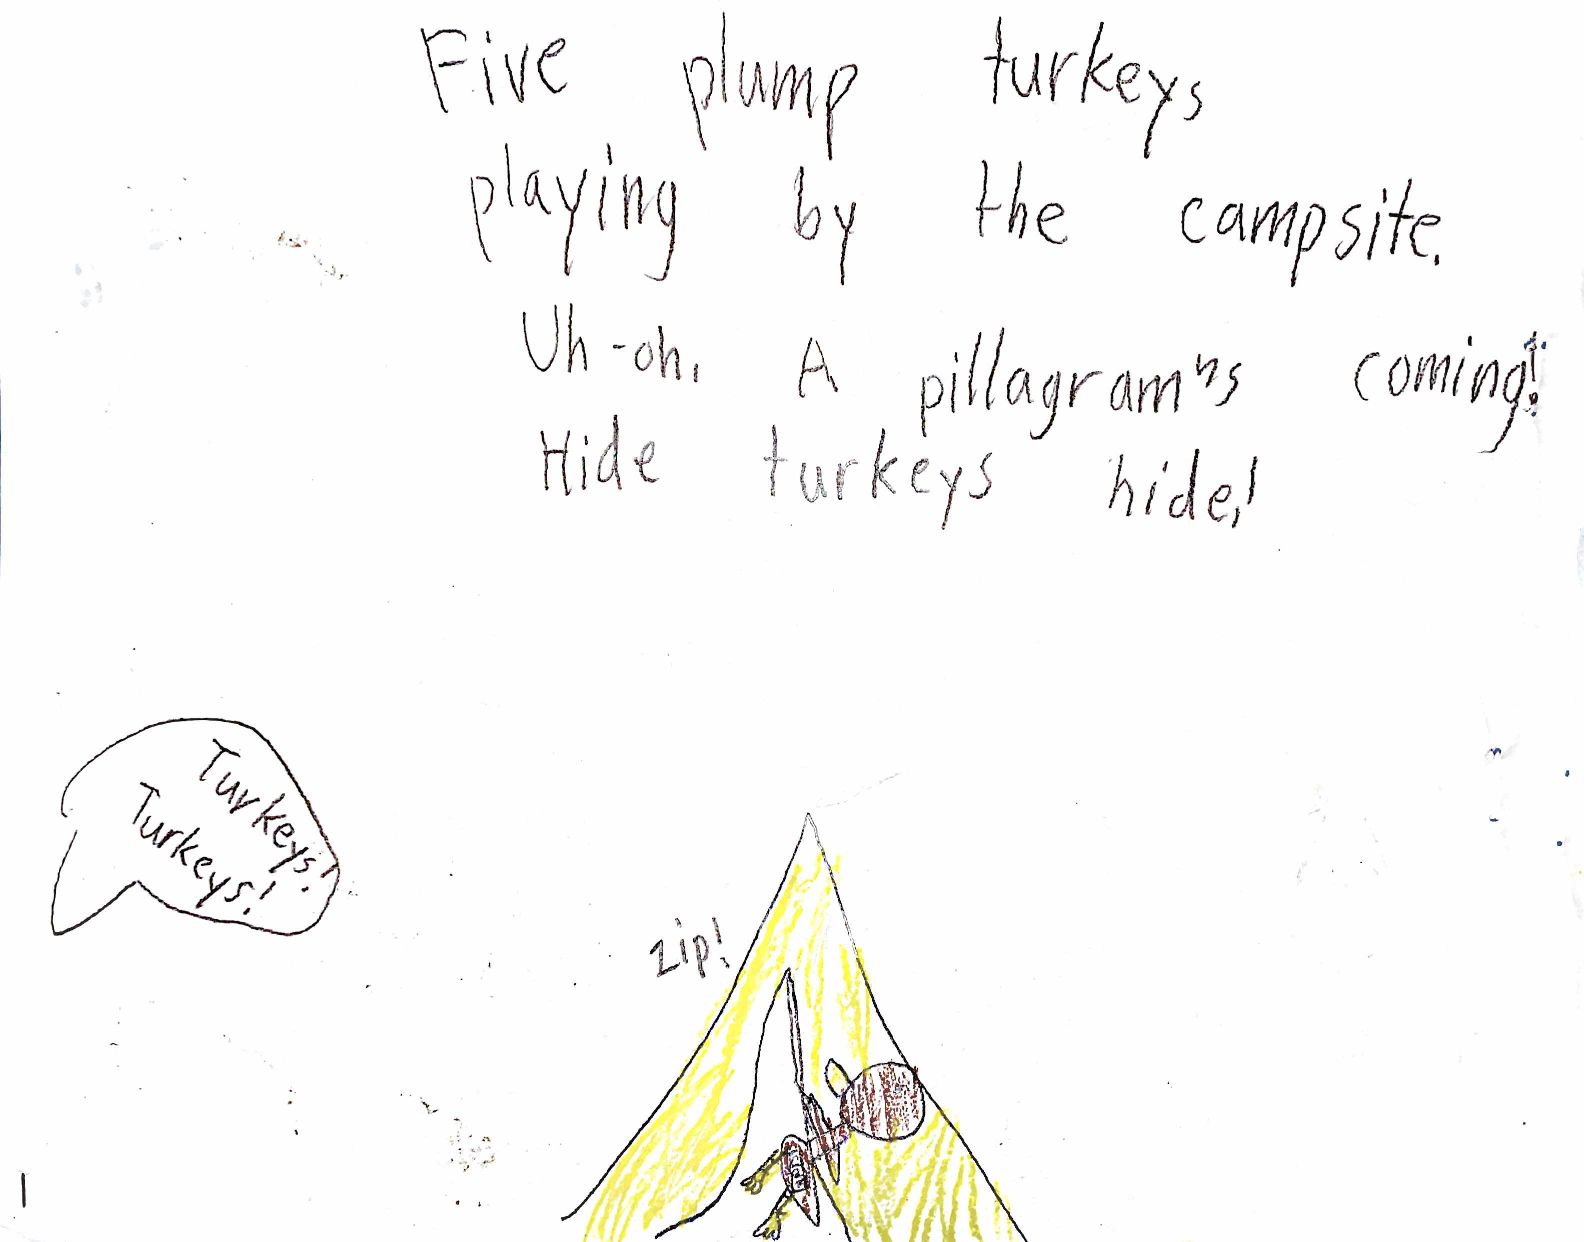 Five plump turkeys
playing by the campsite.
Uh-oh. A pillagram"s coming!
Hide turkeys hide!
Turkeys!
Turkeys!
zip!
1